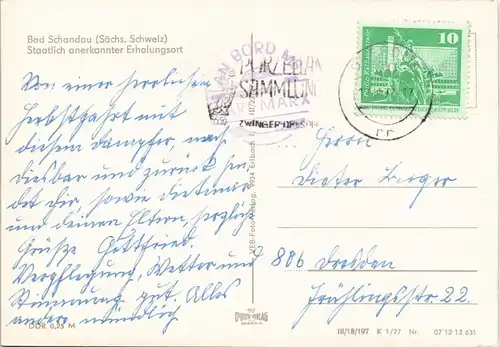 Bad Schandau (Sächs. Schweiz)
Staatlich anerkannter Erholungsort
Von einer herrlichen
Herbstfahrt mit
diesem Dampfer, nach
und zurück sen-
det dir, sowie dietmar
und deinen Eltern, herzliche
Grüße Gottfried.
Verpflegung, Wetter und
Stimmung gut. Alles
andere mündlich
DDR 0,25 M
AN BORD
MARX
PORZELLAN
SAMMLUNG
ZWINGER DRESDEN
10
Herrn
Dieter Berger
806 Dresden
Frühlingsstr 22.
III/18/197 K 1/77 Nr. 07 12 13 631